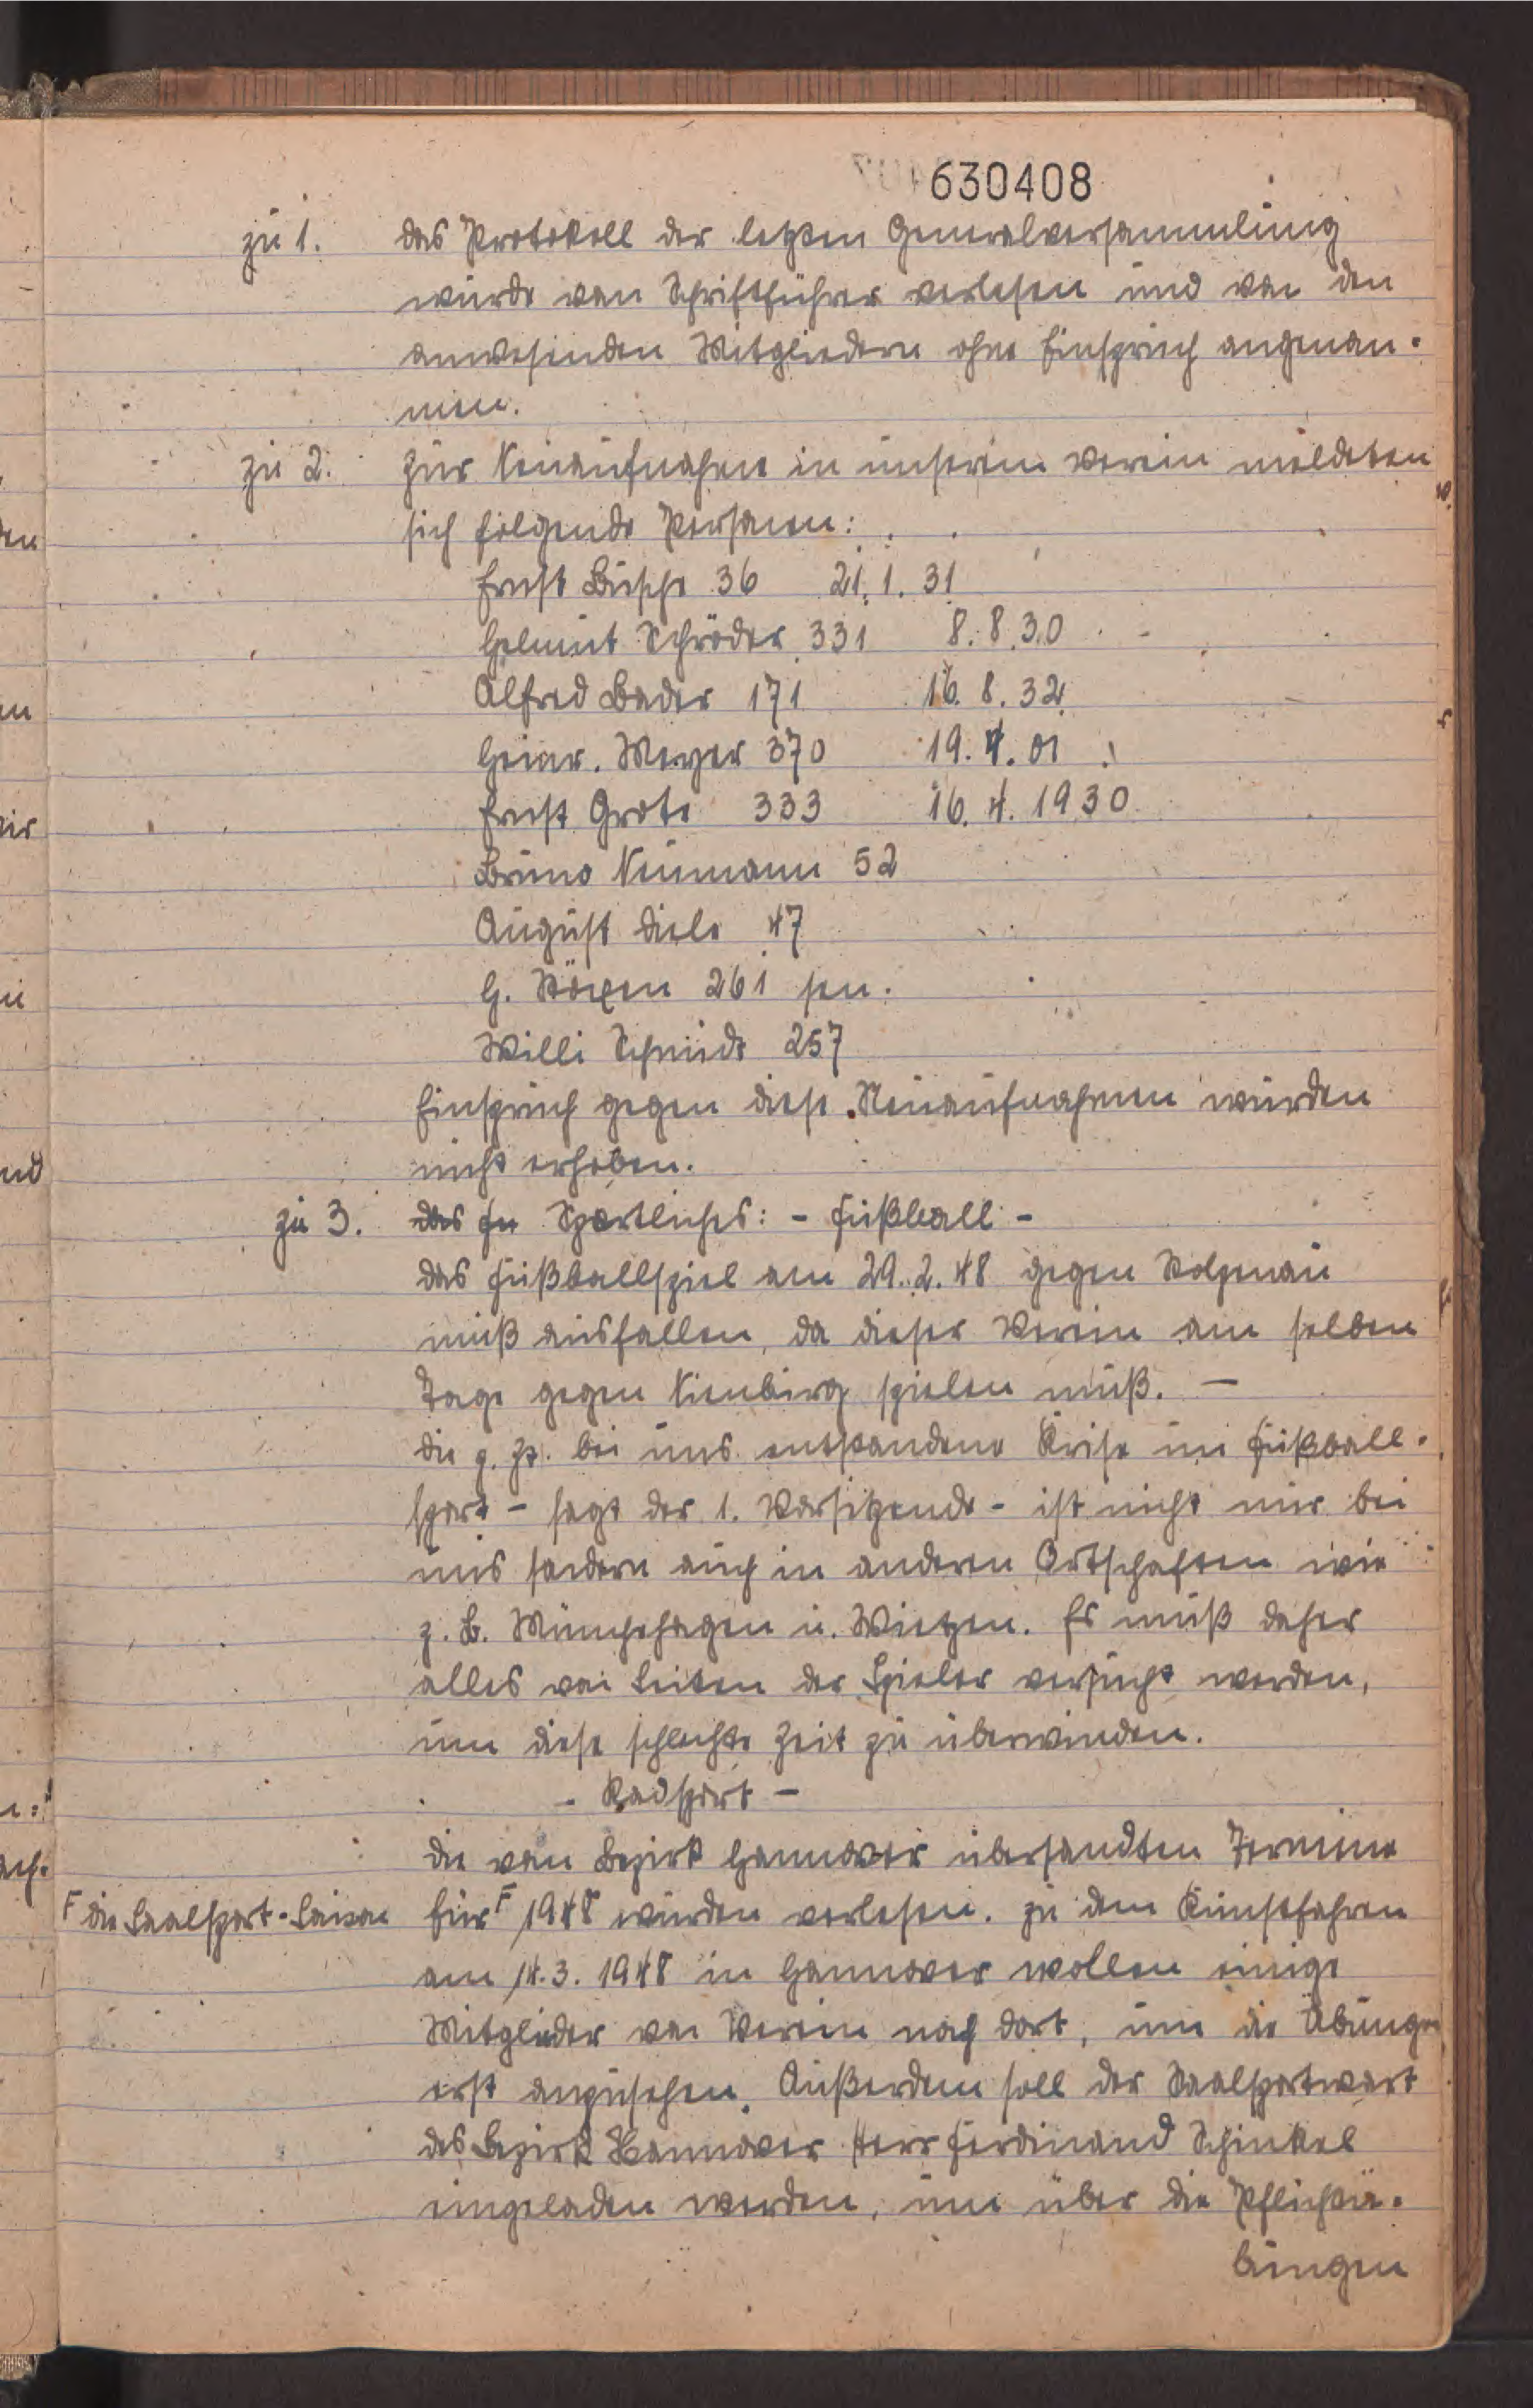 630408
zu 1. das Protokoll der letzten Generalversammlung
wurde vom Schriftführer verlesen und von den
anwesenden Mitgliedern ohne Einspruch angenom-
men.
zu 2. zur Neuaufnahme in unserem Verein meldeten
sich folgende Personen:
Ernst Busche 36 21. 1. 31
Helmut Schröder 331 8. 8. 30
Alfred Bader 171 16. 8. 32
Heinr. Meyer 370 19. 4. 01
Ernst Grote 333 16. 4. 1930
Bruno Neumann 52
August Diele 47
H. Köxen 261 sen.
Willi Schmidt 257
Einspruch gegen diese Neuaufnahmen wurden
nicht erhoben.
zu 3. das Fu Sportliches: - Fußball -
das Fußballspiel am 29. 2. 48 gegen Stolzenau
muß ausfallen, da dieser Verein am selben
Tage gegen Nienburg spielen muß. -
die z. Zt. bei uns entstandene Krise im Fußball-
sport - sagt der 1. Vorsitzende - ist nicht nur bei
uns sondern auch in anderen Ortschaften wie
z. B. Münchehagen u. Wietzen. Es muß daher
alles von Seiten der Spieler versucht werden,
um diese schlechte Zeit zu überwinden.
- Radsport -
die vom Bezirk Hannover übersandten Termine
F die Saalsport-Saison für F 1948 wurden verlesen. zu dem Kunstfahren
am 14. 3. 1948 in Hannover wollen einige
Mitglieder vom Verein nach dort, um die Übungen
erst anzusehen. Außerdem soll der Saalsportwart
des Bezirk Hannover Herr Ferdinand Schinkel
eingeladen werden, um über die Pflichtü-
bungen